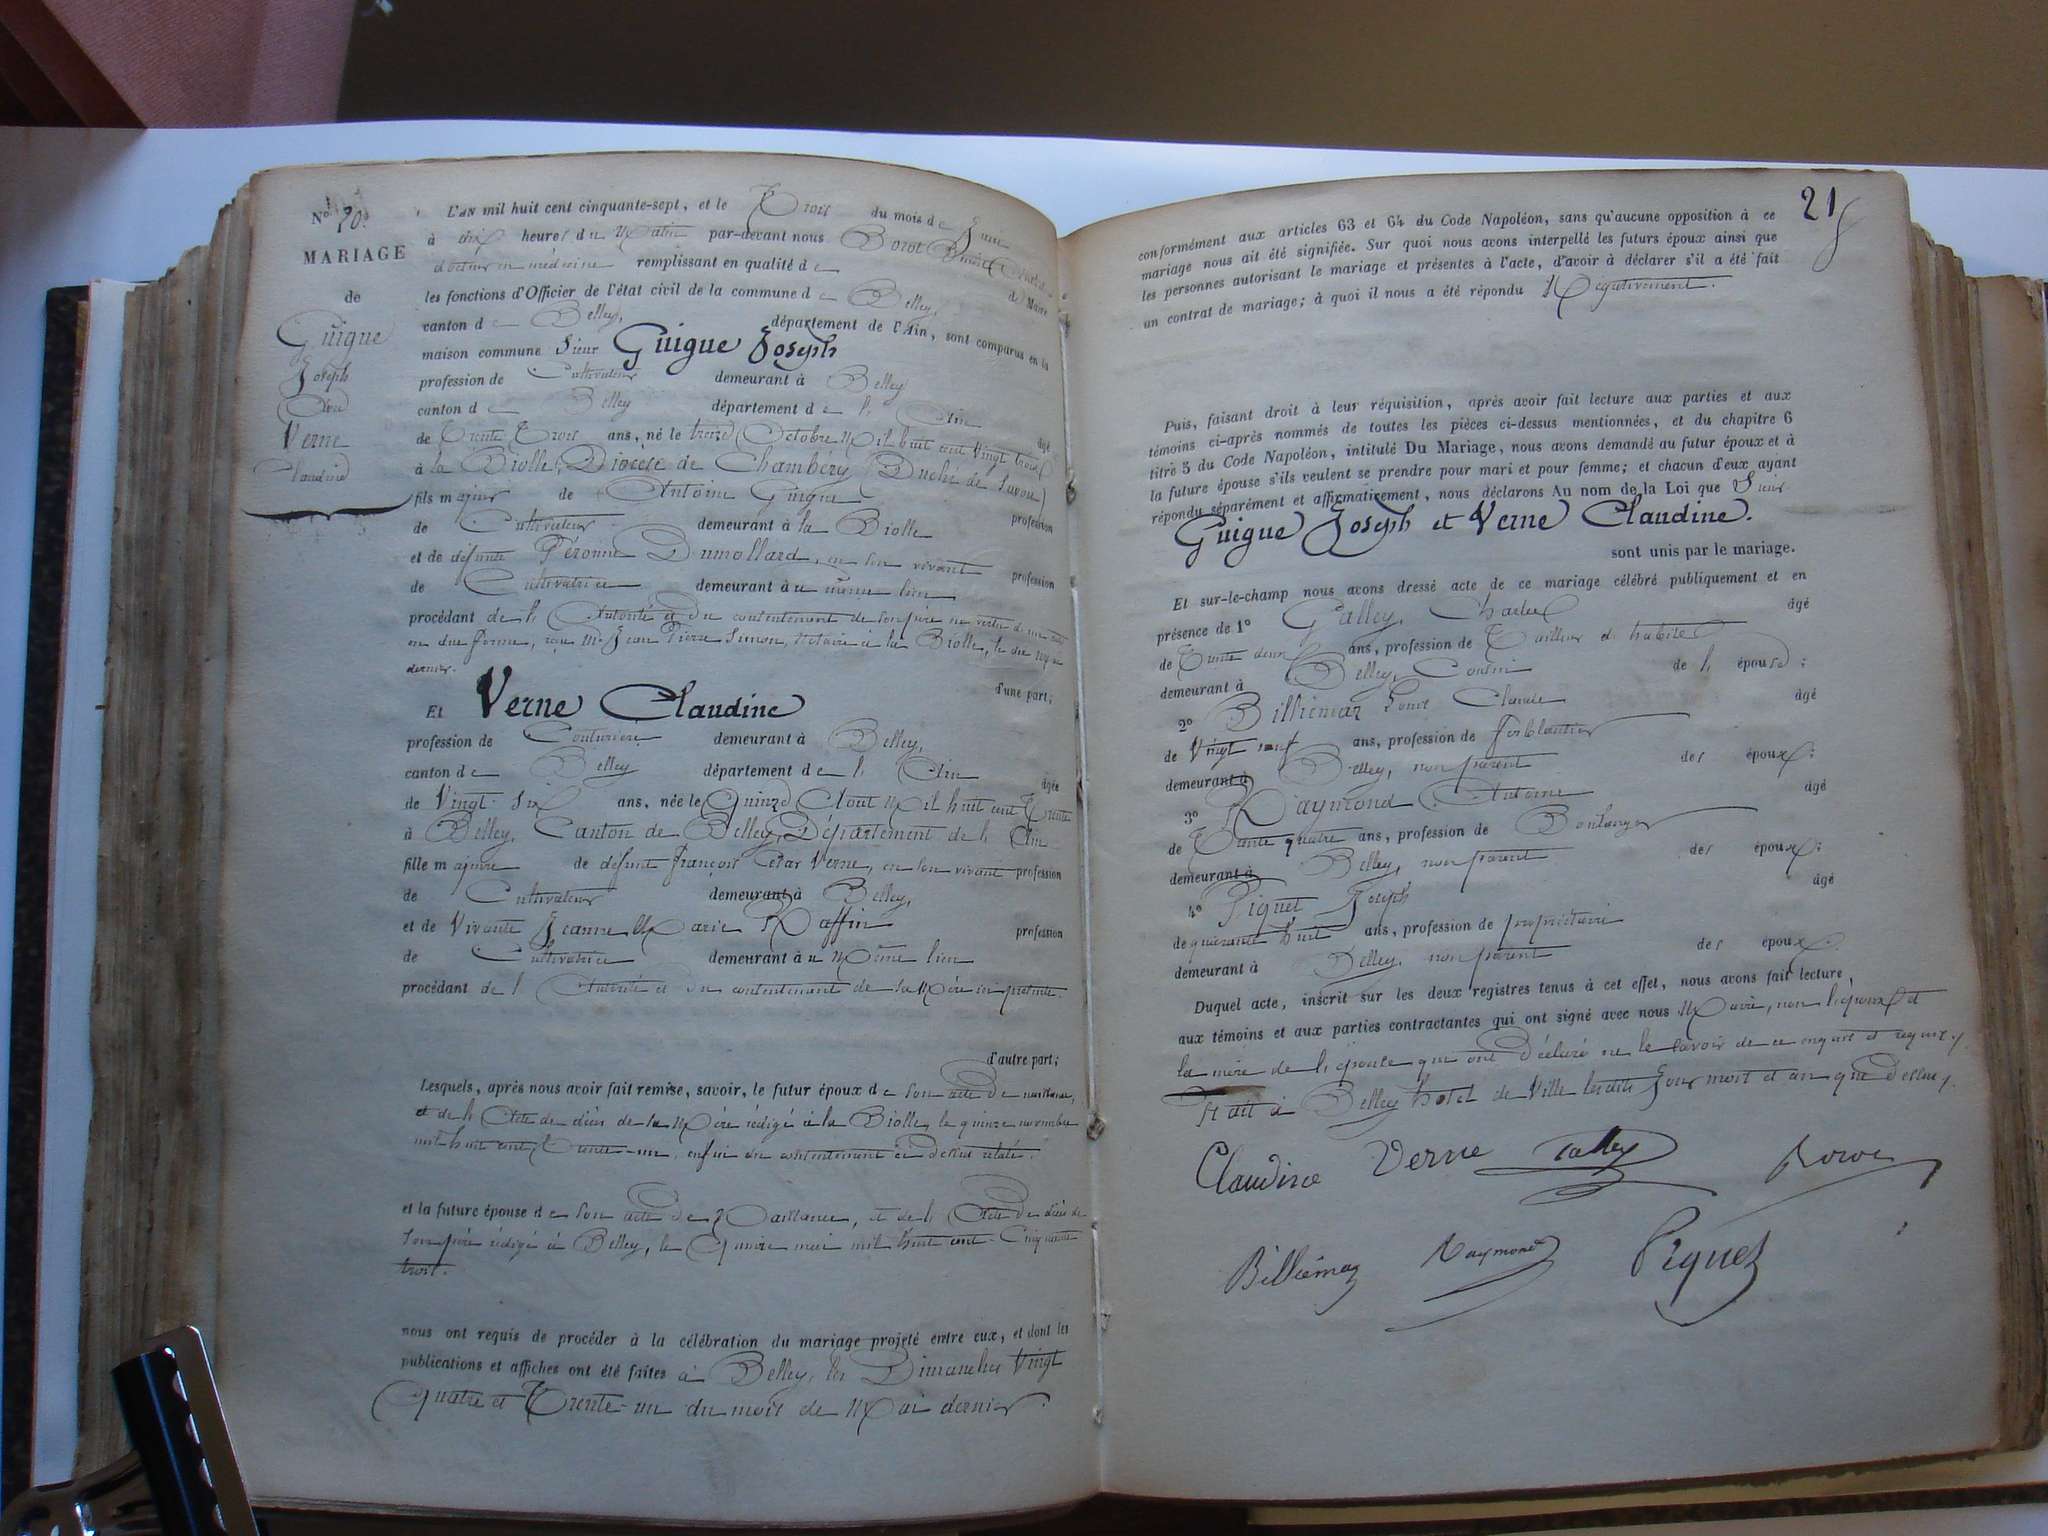 N° 20.
MARIAGE
de
Guigue
Joseph
Et
Verne
Claudine
L'AN mil huit cent cinquante-sept, et le Trois du mois de Juin
à dix heures du Matin par-devant nous Borot
docteur en médecine remplissant en qualité de Maire
les fonctions d'Officier de l'état civil de la commune de Belley,
canton de Belley, département de l'Ain, sont comparus en la
maison commune Sieur Guigue Joseph
profession de Cultivateur demeurant à Belley
canton de Belley département de l'Ain âgé
de Trente Trois ans, né le treize Octobre Mil huit cent vingt trois
à la Biolle, Diocèse de Chambéry (Duché de Savoie)
fils majeur de Antoine Guigue profession
de Cultivateur demeurant à la Biolle
et de défunte Péronne Dumollard, en son vivant profession
de Cultivatrice demeurant au même lieu
procédant de l'Autorité et du consentement de son père en vertu d'un acte
en due forme, reçu Me Jean Pierre Simon, Notaire à la Biolle, le dix
dernier.
d'une part;
Et Verne Claudine
profession de Couturière demeurant à Belley,
canton de Belley département de l'Ain âgée
de Vingt-Six ans, née le Quinze Aout Mil huit cent Trente
à Belley, Canton de Belley, Département de l'Ain
fille majeure de défunt François César Verne, en son vivant profession
de Cultivateur demeurant à Belley,
et de Vivante Jeanne Marie Raffin profession
de Cultivatrice demeurant au Même lieu
procédant de l'Autorité et du consentement de sa Mère ici présente.
d'autre part;
Lesquels, après nous avoir fait remise, savoir, le futur époux de son acte de naissance,
et de l'Acte de décès de sa Mère rédigé à la Biolle, le quinze novembre
mil huit cent Trente-un, enfin du consentement ci dessus relaté.
et la future épouse de son acte de Naissance, et de l'Acte de décès de
son père rédigé à Belley, le Quinze mai mil huit cent Cinquante
trois.
nous ont requis de procéder à la célébration du mariage projeté entre eux, et dont les
publications et affiches ont été faites à Belley, les Dimanches Vingt
Quatre et Trente-un du mois de Mai dernier.
21
conformément aux articles 63 et 64 du Code Napoléon, sans qu'aucune opposition à ce
mariage nous ait été signifiée. Sur quoi nous avons interpellé les futurs époux ainsi que
les personnes autorisant le mariage et présentes à l'acte, d'avoir à déclarer s'il a été fait
un contrat de mariage; à quoi il nous a été répondu Négativement.
Puis, faisant droit à leur réquisition, après avoir fait lecture aux parties et aux
témoins ci-après nommés de toutes les pièces ci-dessus mentionnées, et du chapitre 6
titre 5 du Code Napoléon, intitulé Du Mariage, nous avons demandé au futur époux et à
la future épouse s'ils veulent se prendre pour mari et pour femme; et chacun d'eux ayant
répondu séparément et affirmativement, nous déclarons Au nom de la Loi que Sieur
Guigue Joseph et Verne Claudine.
sont unis par le mariage.
Et sur-le-champ nous avons dressé acte de ce mariage célébré publiquement et en
présence de 1° Galley, Charles âgé
de Trente deux ans, profession de Tailleur d'habits
demeurant à Belley, Cousin de l'épouse;
2° Billiemaz Louis Claude âgé
de Vingt neuf ans, profession de ferblantier
demeurant à Belley, non parent des époux;
3° Raymond Antoine âgé
de Trente quatre ans, profession de Boulanger
demeurant à Belley, non parent des époux;
4° Piguet Joseph âgé
de quarante huit ans, profession de propriétaire
demeurant à Belley, non parent des époux.
Duquel acte, inscrit sur les deux registres tenus à cet effet, nous avons fait lecture,
aux témoins et aux parties contractantes qui ont signé avec nous Maire, non l'époux et
la mère de l'épouse qui ont Déclaré ne le savoir de ce enquis et requis.
Fait à Belley hotel de Ville lesdits Jour mois et an que dessus.
Claudine Verne Galley Borot
Billiémaz Raymond Piguet